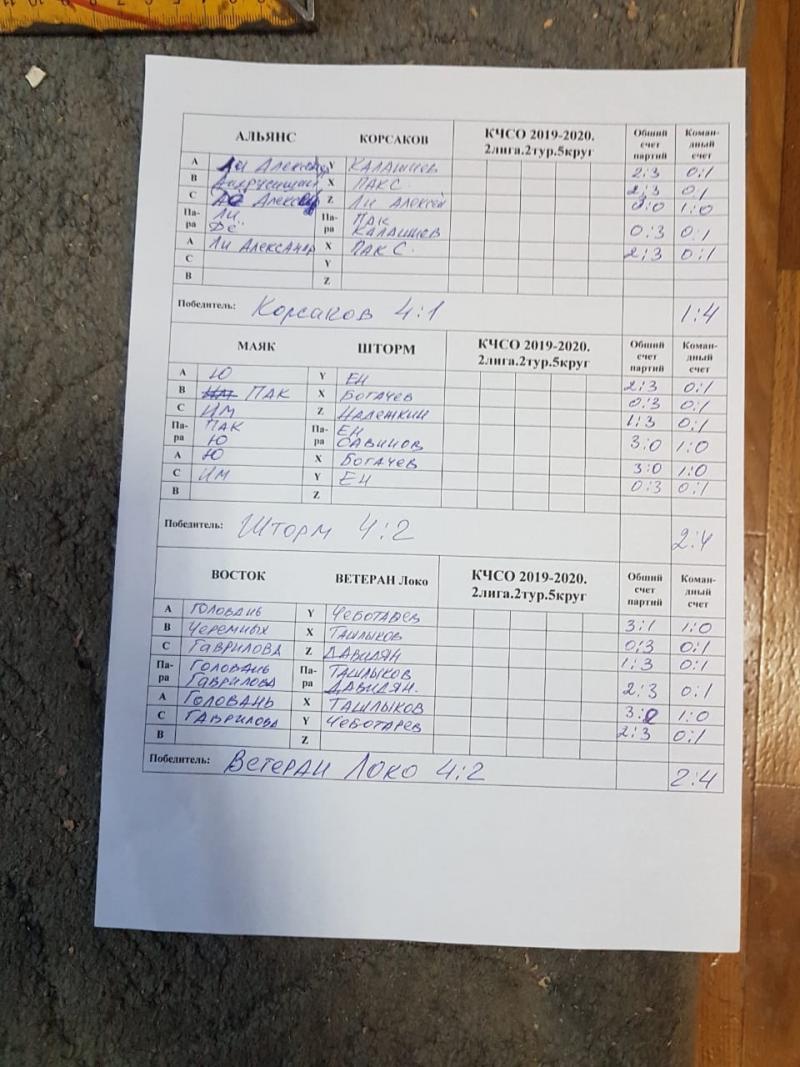 АЛЬЯНС КОРСАКОВ КЧСО 2019-2020. 2лига.2тур.5круг Общий счет партий Коман-дный счет
A Ли Александр Y КАЛАШНЕВ 2:3 0:1
B X ПАК С. 2:3 0:1
C Александр Z Ли Алексей 3:0 1:0
Па-ра Ли Де Па-ра ПАК КАЛАШНЕВ 0:3 0:1
A Ли АЛЕКСАНДР X ПАК С. 2:3 0:1
C Y
B Z
Победитель: Корсаков 4:1 1:4
МАЯК ШТОРМ КЧСО 2019-2020. 2лига.2тур.5круг Общий счет партий Коман-дный счет
A Ю Y ЕН 2:3 0:1
B ПАК X БОГАЧЕВ 0:3 0:1
C ИМ Z НАЛЕЖКИН 1:3 0:1
Па-ра ПАК Ю Па-ра ЕН САВИНОВ 3:0 1:0
A Ю X БОГАЧЕВ 3:0 1:0
C ИМ Y ЕН 0:3 0:1
B Z
Победитель: Шторм 4:2 2:4
ВОСТОК ВЕТЕРАН Локо КЧСО 2019-2020. 2лига.2тур.5круг Общий счет партий Коман-дный счет
A ГОЛОВАНЬ Y ЧЕБОТАРЕВ 3:1 1:0
B ЧЕРЕМНЫХ X ТАШЛЫКОВ 0:3 0:1
C ГАВРИЛОВА Z ДАВИДЯН 1:3 0:1
Па-ра ГОЛОВАНЬ ГАВРИЛОВА Па-ра ТАШЛЫКОВ ДАВИДЯН. 2:3 0:1
A ГОЛОВАНЬ X ТАШЛЫКОВ 3:0 1:0
C ГАВРИЛОВА Y ЧЕБОТАРЕВ 2:3 0:1
B Z
Победитель: ВЕТЕРАН ЛОКО 4:2 2:4